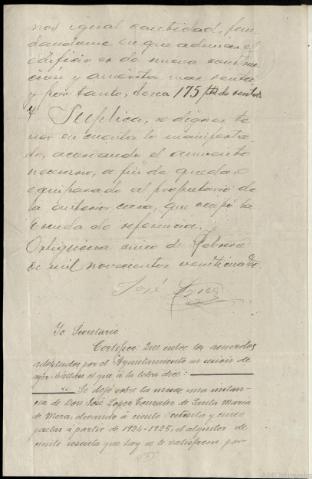 nos igual cantidad, fun
dandome en que ademas el
edificio es de nueva construc
cion y amerita mas renta
y por tanto, desea 175 ptas de renta
Y Suplica, se dignen te
ner en cuenta lo manifesta
do, acordando el aumento
necesario, a fin de quedar
equiparado al propietario de
la anterior casa, que ocupó la
Escuela de referencia.
Ortigueira cinco de Febrero
de mil novecientos veinticinco
José López
Yo Secretario
Certifico: Que entre los acuerdos
adoptados por el Ayuntamiento en sesión de
el que a la letra dice:
Se dejó sobre la mesa una instan
cia de Don José López Gonzalez de Santa María
de Mera, elevando a ciento setenta y cinco
pesetas a partir de 1924-1925, el alquiler de
escuela que hoy se le satisfacen por